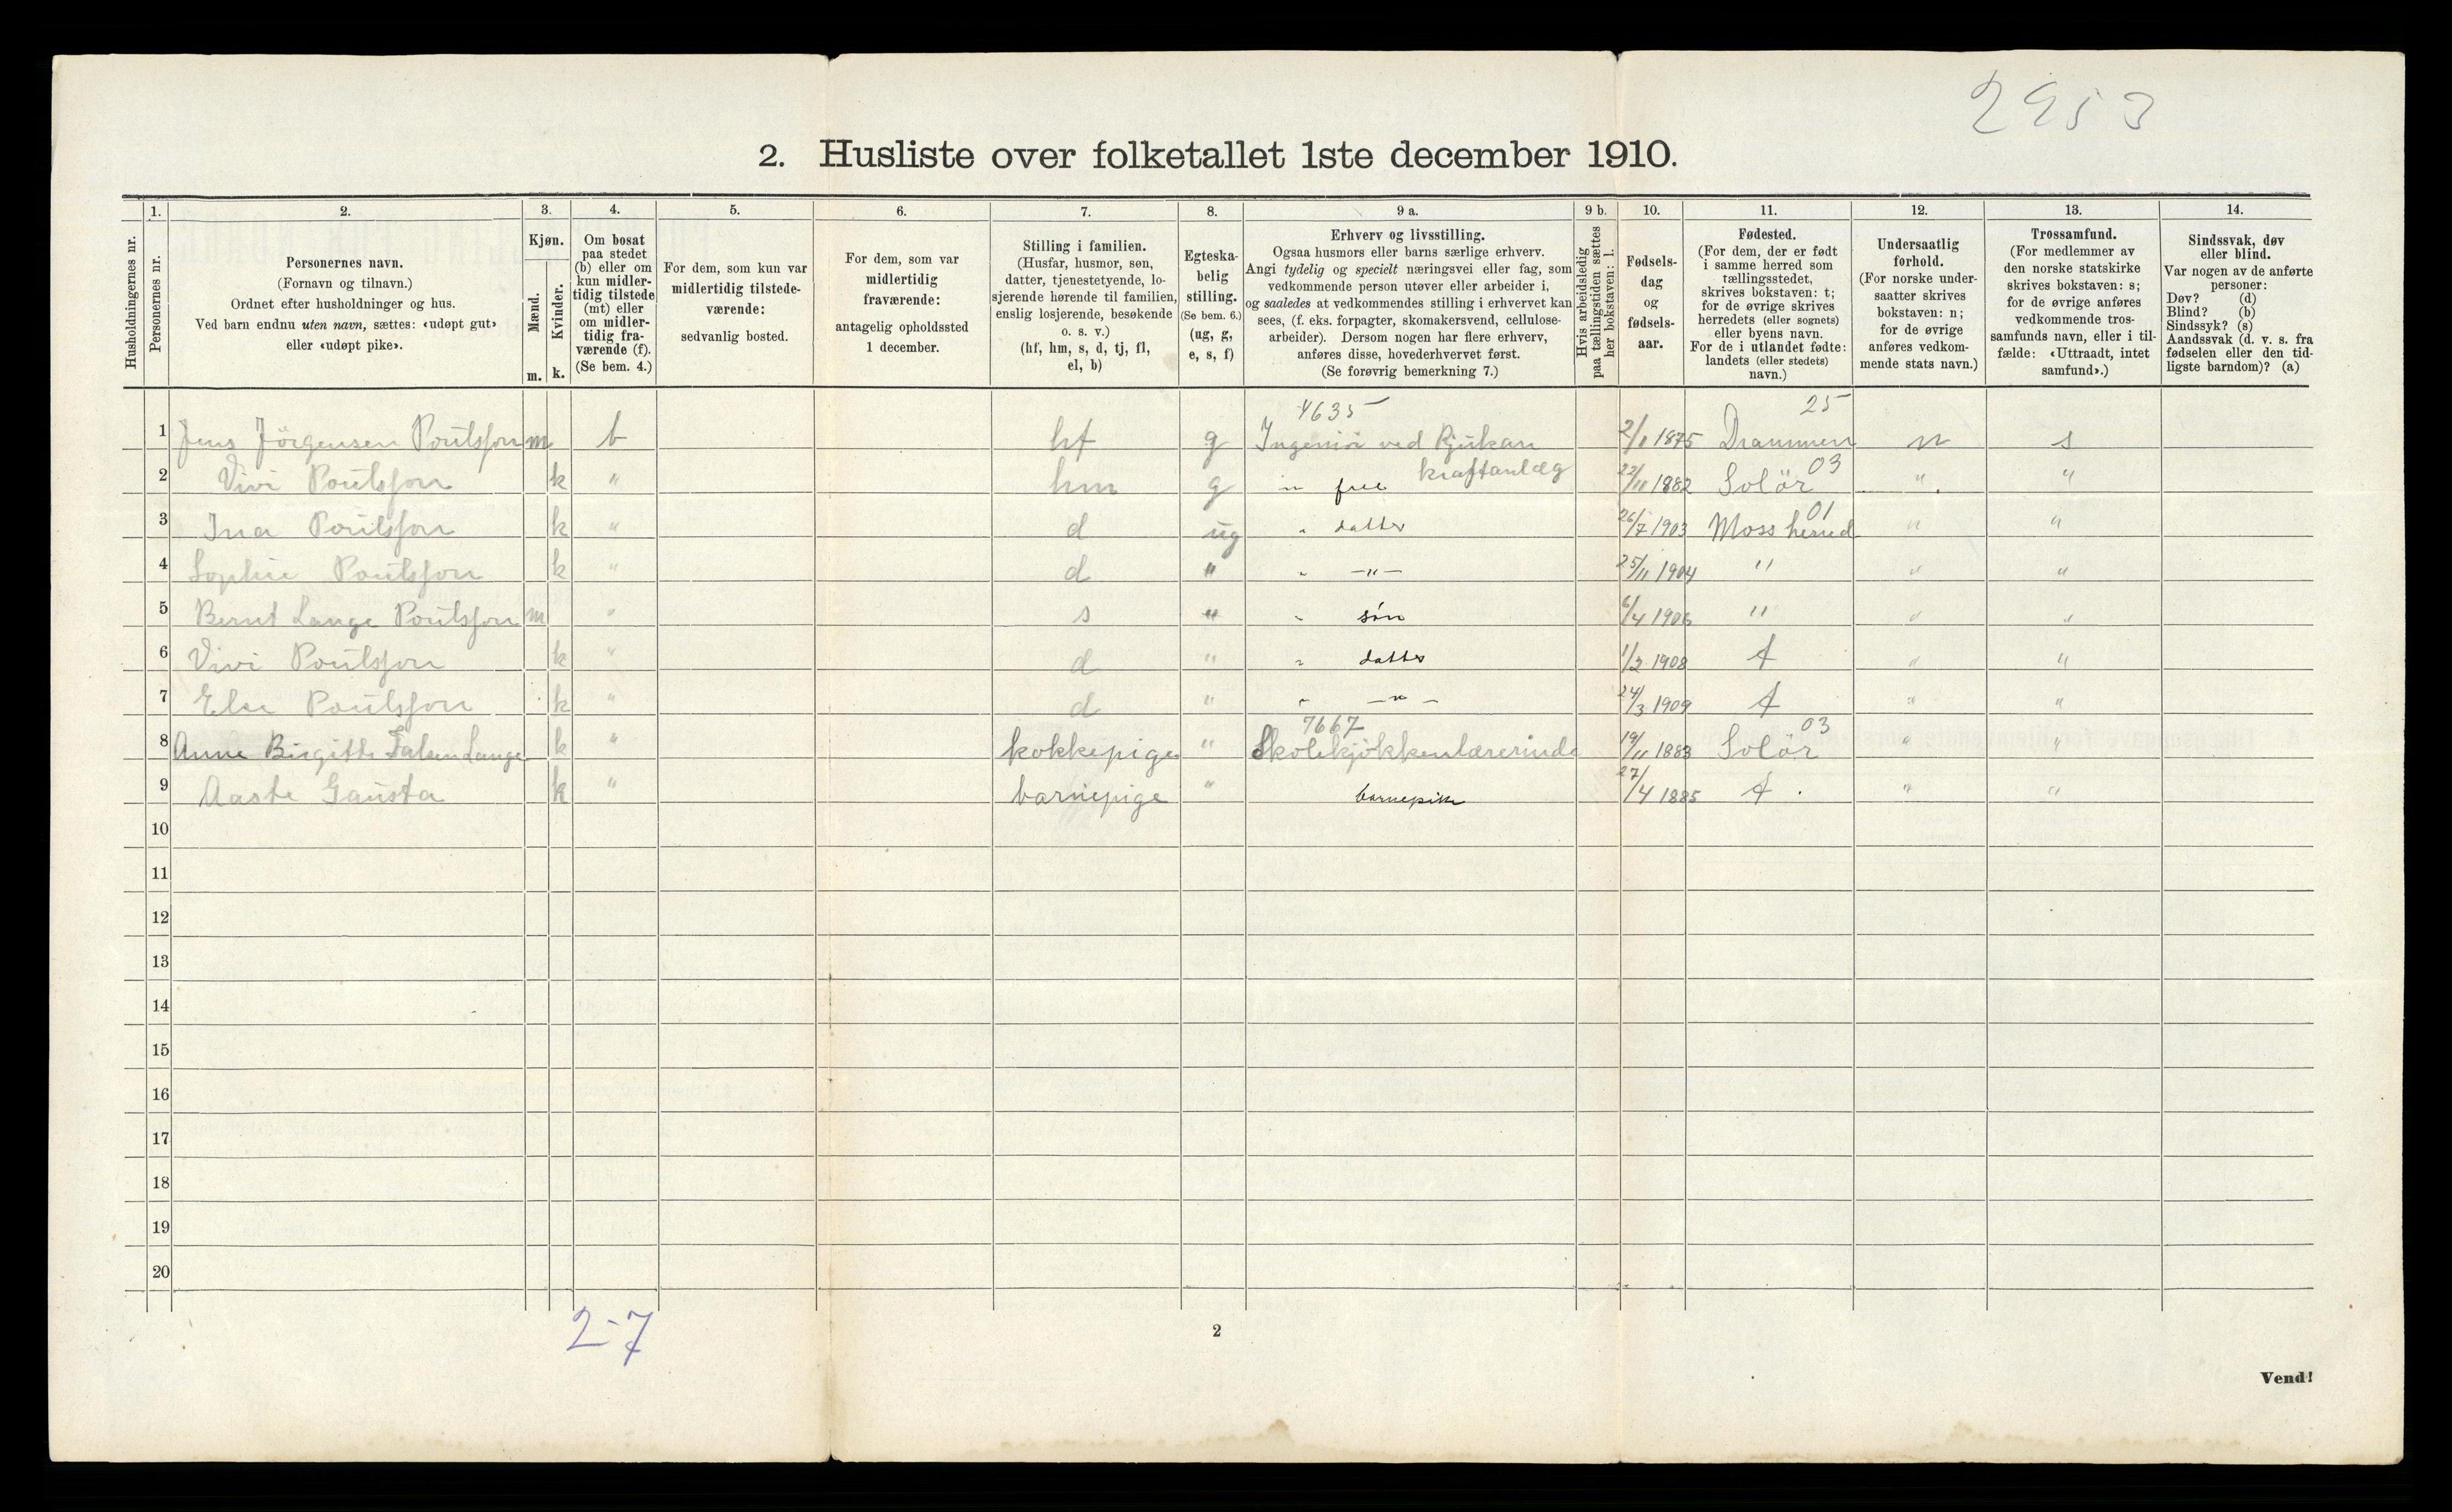 2953
2. Husliste over folketallet 1ste december 1910.
Husholdningernes nr.
1.
Personernes nr.
2.
Personernes navn.
(Fornavn og tilnavn.)
Ordnet efter husholdninger og hus.
Ved barn endnu uten navn, sættes: «udøpt gut»
eller «udøpt pike».
3.
Kjøn.
Mænd.
Kvinder.
m. k.
4.
Om bosat
paa stedet
(b) eller om
kun midler-
tidig tilstede
(mt) eller
om midler-
tidig fra-
værende (f).
(Se bem. 4.)
5.
For dem, som kun var
midlertidig tilstede-
værende:
sedvanlig bosted.
6.
For dem, som var
midlertidig
fraværende:
antagelig opholdssted
1 december.
7.
Stilling i familien.
(Husfar, husmor, søn,
datter, tjenestetyende, lo-
sjerende hørende til familien,
enslig losjerende, besøkende
o. s. v.)
(hf, hm, s, d, tj, fl,
el, b)
8.
Egteska-
belig
stilling.
(Se bem. 6.)
(ug, g,
e, s, f)
9 a.
Erhverv og livsstilling.
Ogsaa husmors eller barns særlige erhverv.
Angi tydelig og specielt næringsvei eller fag, som
vedkommende person utøver eller arbeider i,
og saaledes at vedkommendes stilling i erhvervet kan
sees, (f. eks. forpagter, skomakersvend, cellulose-
arbeider). Dersom nogen har flere erhverv,
anføres disse, hovederhvervet først.
(Se forøvrig bemerkning 7.)
9 b.
Hvis arbeidsledig
paa tællingstiden sættes
her bokstaven: l.
10.
Fødsels-
dag
og
fødsels-
aar.
11.
Fødested.
(For dem, der er født
i samme herred som
tællingsstedet,
skrives bokstaven: t;
for de øvrige skrives
herredets (eller sognets)
eller byens navn.
For de i utlandet fødte:
landets (eller stedets)
navn.)
12.
Undersaatlig
forhold.
(For norske under-
saatter skrives
bokstaven: n;
for de øvrige
anføres vedkom-
mende stats navn.)
13.
Trossamfund.
(For medlemmer av
den norske statskirke
skrives bokstaven: s;
for de øvrige anføres
vedkommende tros-
samfunds navn, eller i til-
fælde: «Uttraadt, intet
samfund».)
14.
Sindssvak, døv
eller blind.
Var nogen av de anførte
personer:
Døv? (d)
Blind? (b)
Sindssyk? (s)
Aandssvak (d. v. s. fra
fødselen eller den tid-
ligste barndom)? (a)
4635 25
1 Jens Jörgensen Poulsson m b hf g Ingeniör ved Rjukan 2/1 1875 Drammen n s
kraftanlæg 03
2 Vivi Poulsson k " hm g " frue 22/11 1882 Solör " "
01
3 Ina Poulsson k " d ug " datter 26/7 1903 Moss herred " "
4 Sophie Poulsson k " d " " —"— 25/11 1904 " " "
5 Bernt Lange Poulsson m " s " " søn 6/4 1906 " " "
6 Vivi Poulsson k " d " " datter 1/2 1908 t " "
7 Else Poulsson k " d " " —"— 24/3 1909 t " "
7667 03
8 Anne Birgitte Falsen Lange k " kokkepige " Skolekjökkenlærerinde 19/11 1883 Solör " "
9 Aaste Gausta k " barnepige " barnepike 27/4 1885 t " "
10
11
12
13
14
15
16
17
18
19
20
2-7
2
Vend!